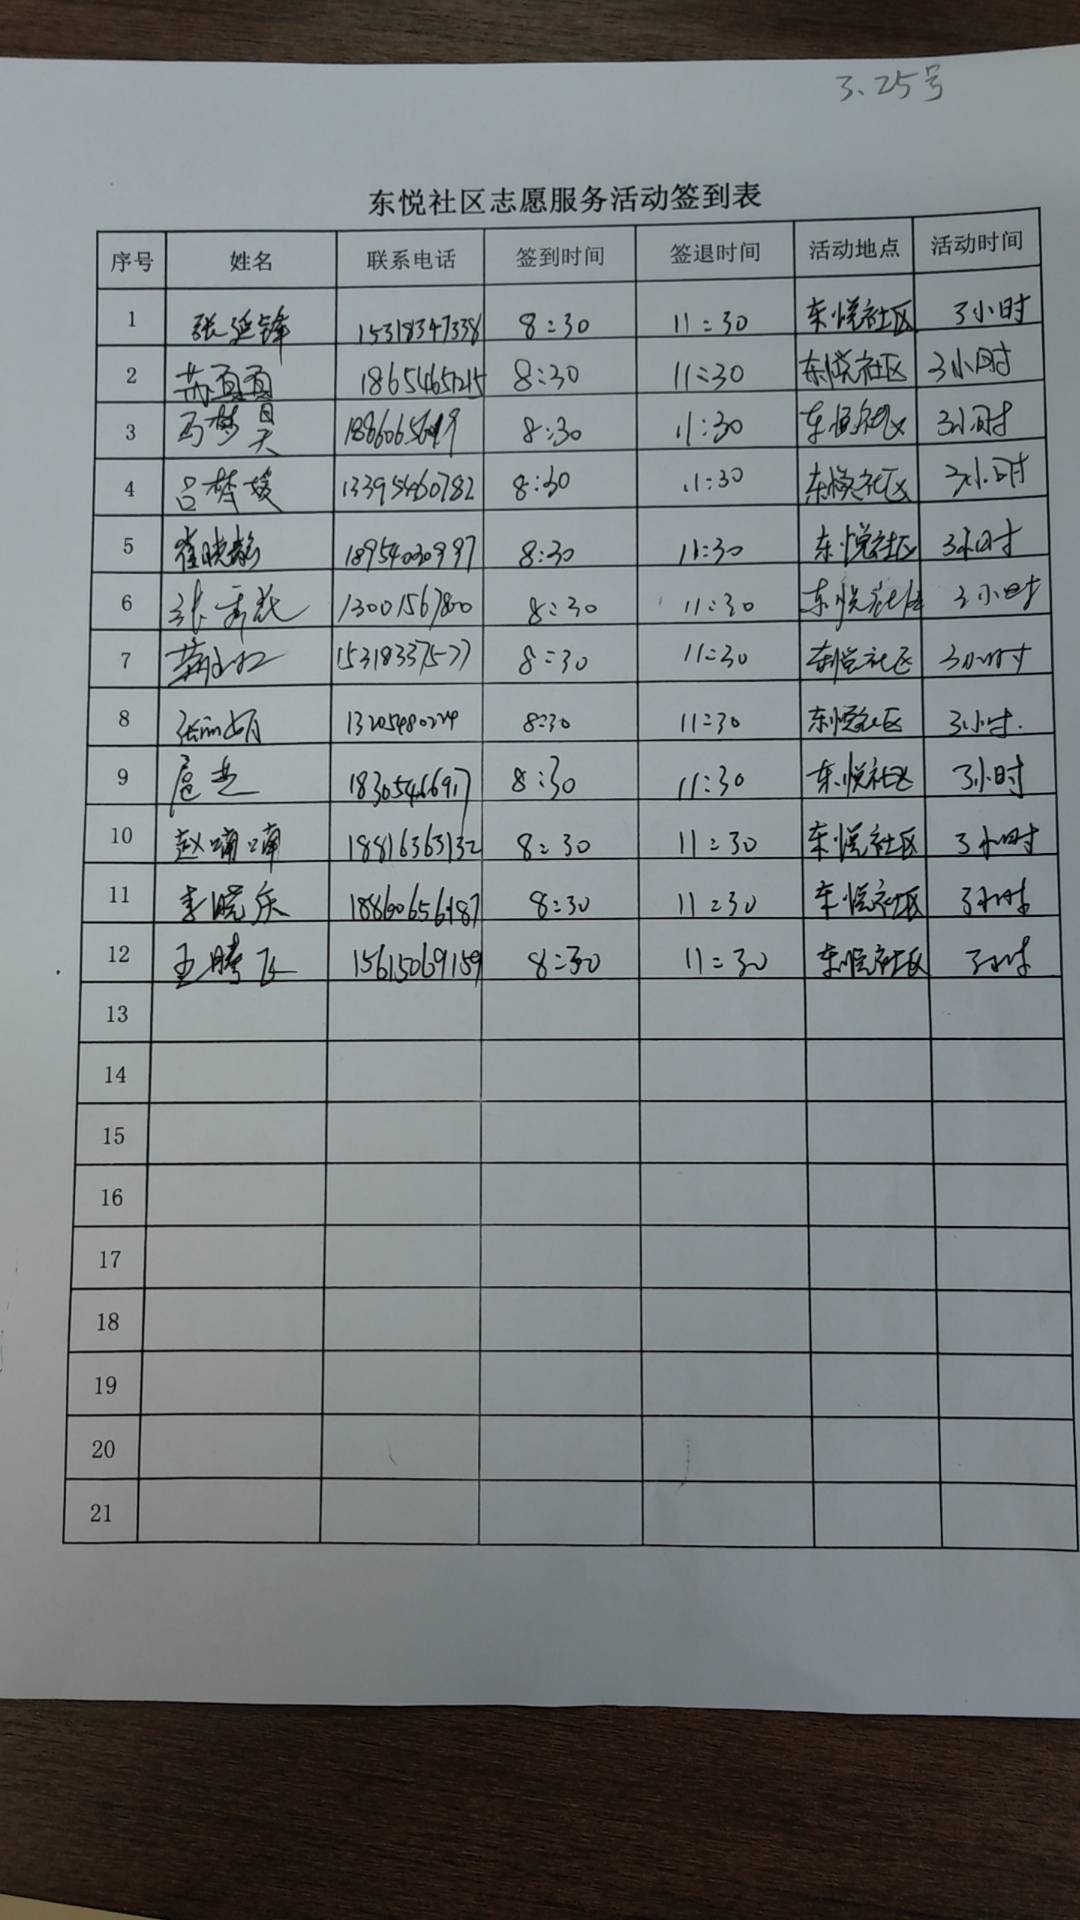 3.25号
东悦社区志愿服务活动签到表
序号 姓名 联系电话 签到时间 签退时间 活动地点 活动时间
1 张延锋 15318347338 8:30 11:30 东悦社区 3小时
2 苏真真 18654657215 8:30 11:30 东悦社区 3小时
3 马梦昊 8:30 11:30 东悦社区 3小时
4 吕梦媛 13395460782 8:30 11:30 东悦社区 3小时
5 崔晓静 18954030997 8:30 11:30 东悦社区 3小时
6 张秀花 13001567800 8:30 11:30 东悦社区 3小时
7 15318337577 8:30 11:30 东悦社区 3小时
8 张丽娟 13205480224 8:30 11:30 东悦社区 3小时
9 扈芝 18305466917 8:30 11:30 东悦社区 3小时
10 赵喃喃 18816363132 8:30 11:30 东悦社区 3小时
11 李晓庆 18860656487 8:30 11:30 东悦社区 3小时
12 王腾飞 15615069159 8:30 11:30 东悦社区 3小时
13
14
15
16
17
18
19
20
21